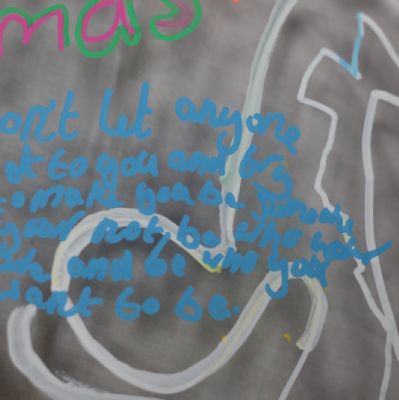 mas
on't let anyone
to you and try
to make you be someone
your not be who you
and be who you
want to be.